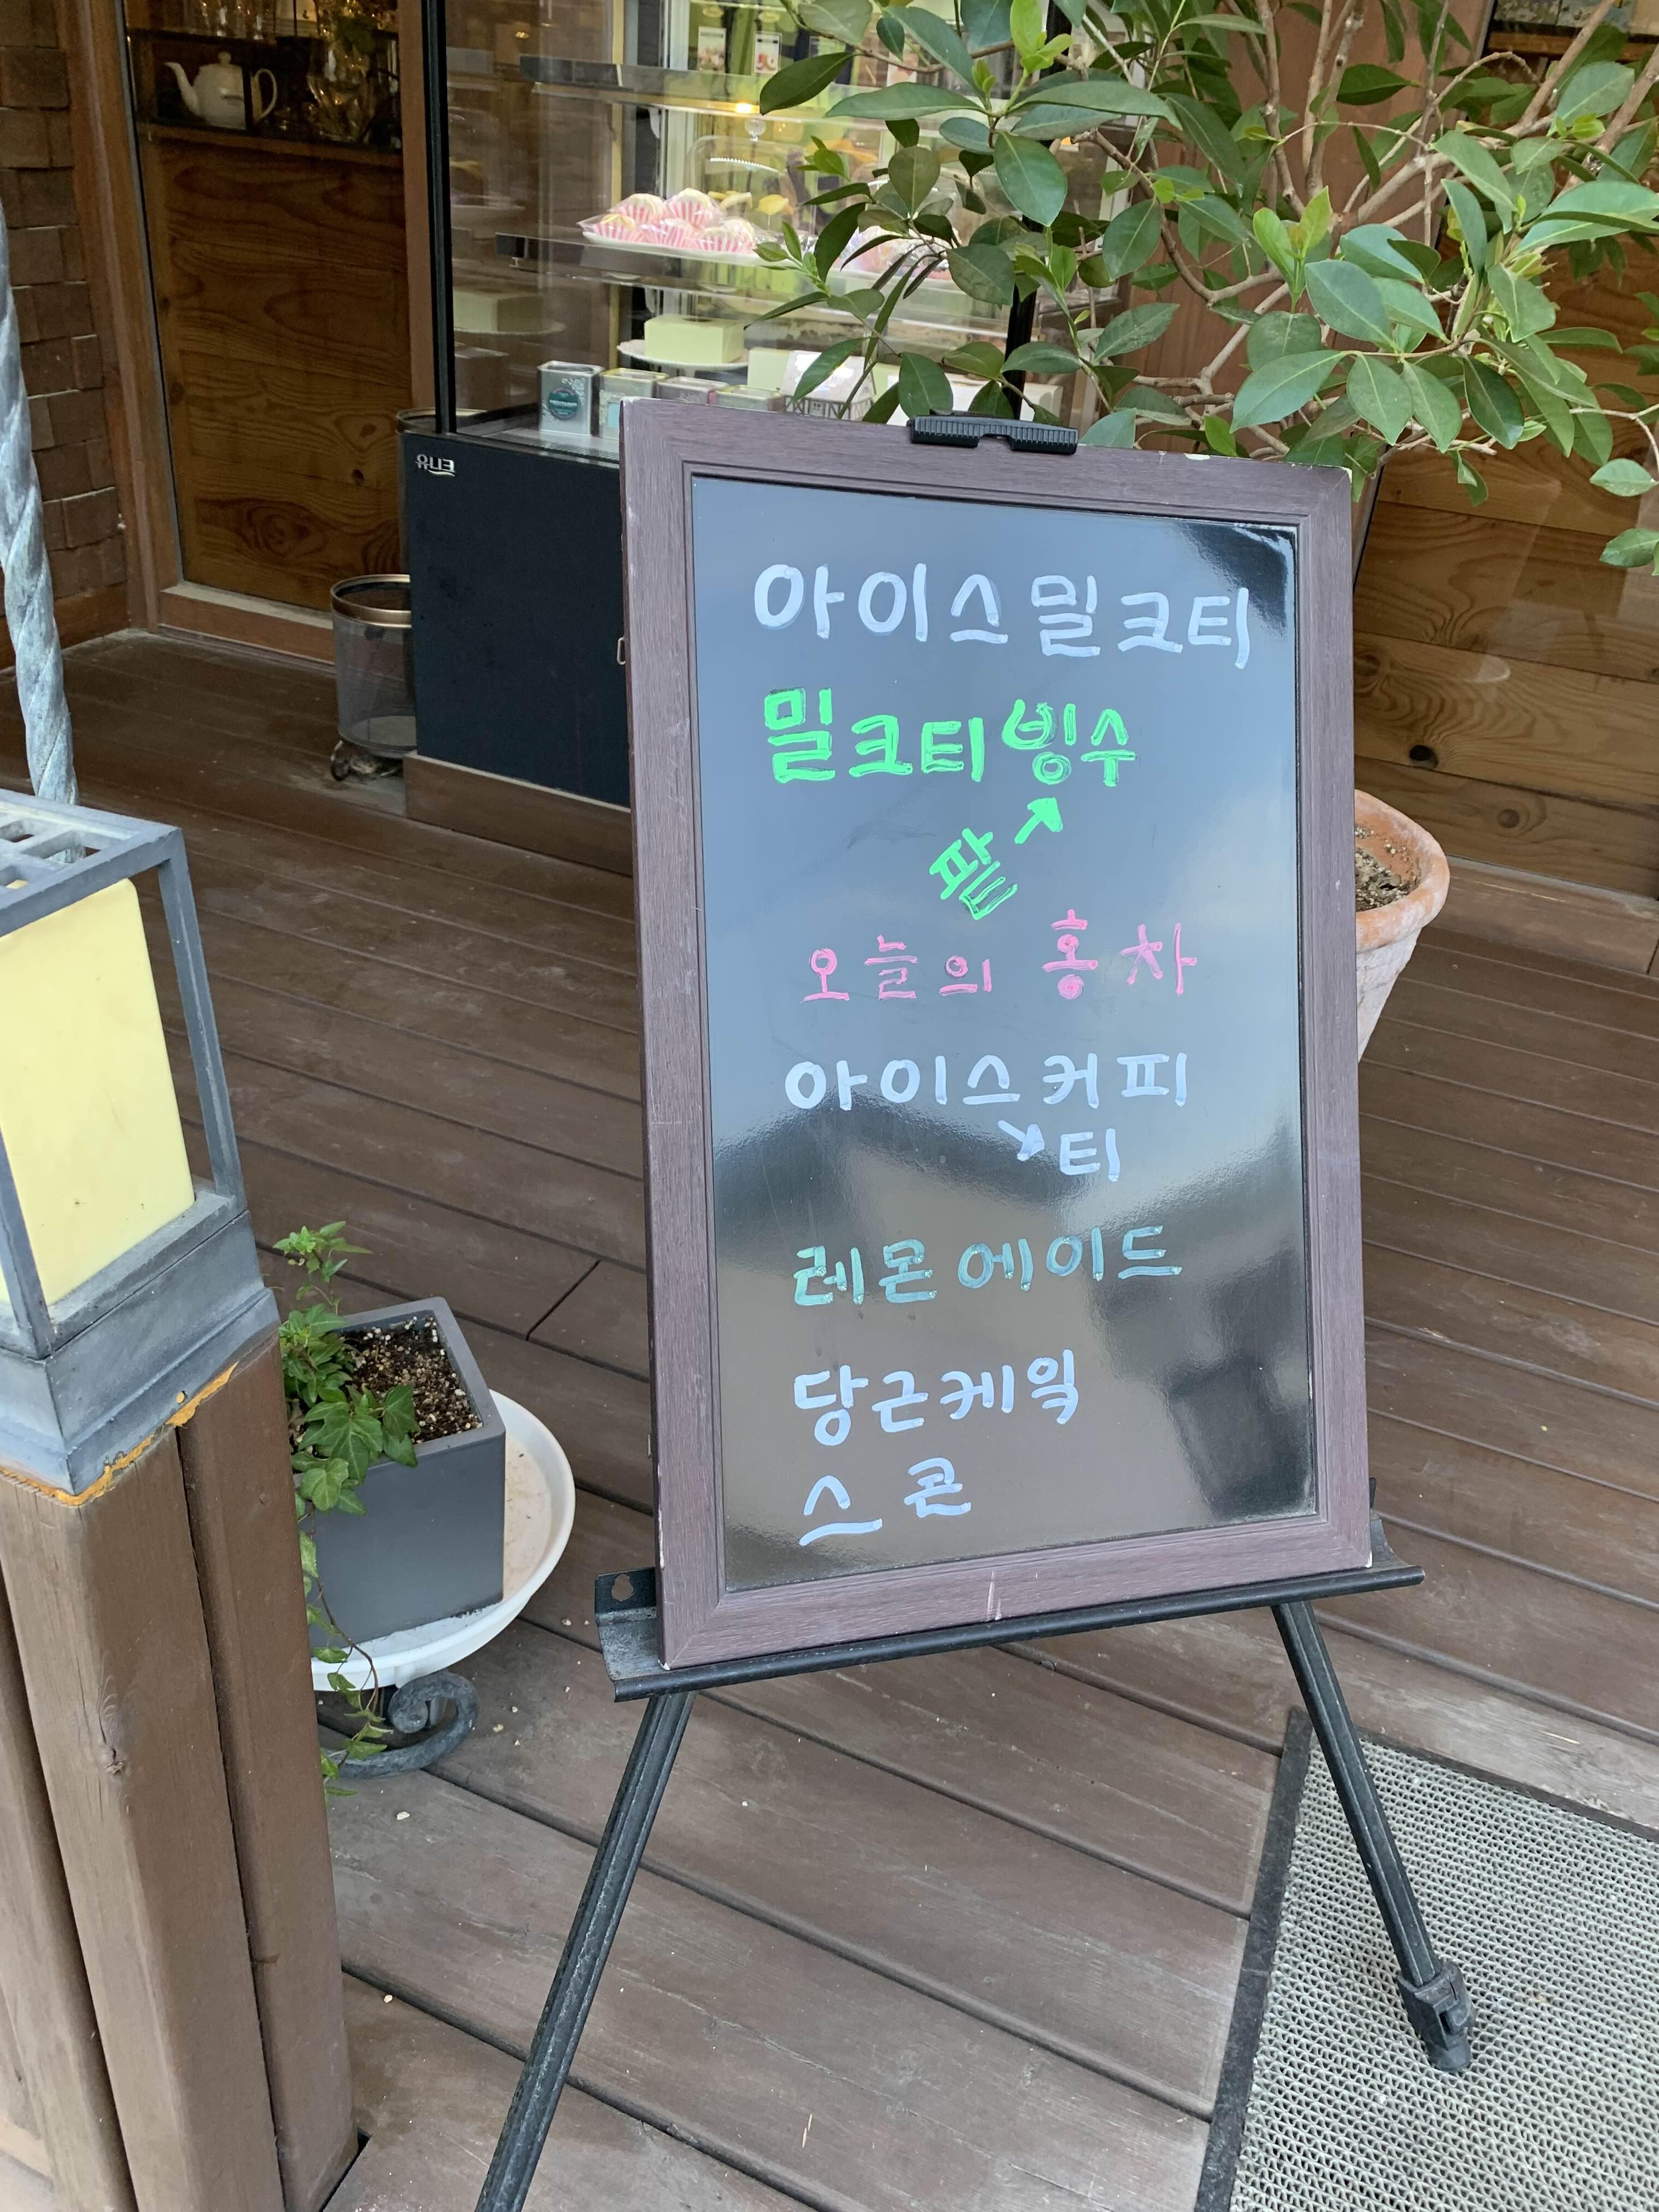 유니크
아이스밀크티
밀크티빙수
팥
오늘의 홍차
아이스커피
티
레몬에이드
당근케익
스콘